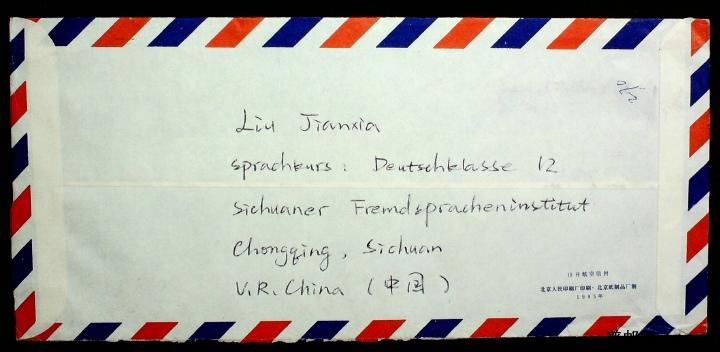 Liu Jianxia
Sprachkurs: Deutschklasse 12
Sichuaner Fremdspracheninstitut
Chongqing, Sichuan
V.R. China (中国)
北京人民印刷厂印刷·北京纸制品厂制
1985年